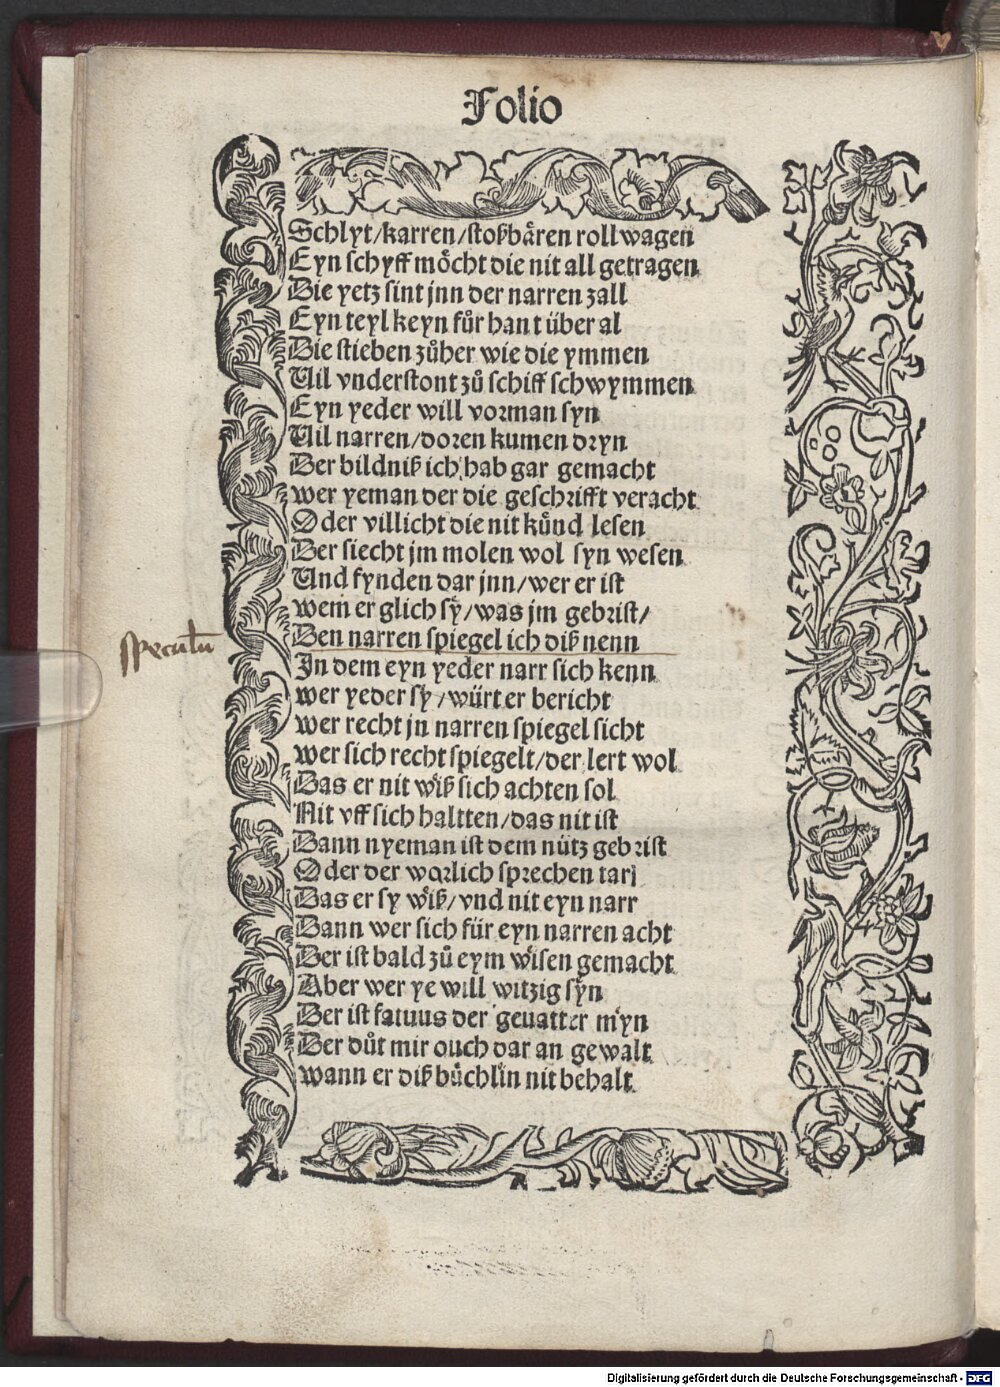 Folio
Schlyt/karren/stoßbären rollwagen
Eyn schyff möcht die nit all getragen
Die yetz sint jnn der narren zall
Eyn teyl keyn fůr hant über al
Die stieben zůher wie die ymmen
Vil vnderstont zů schiff schwymmen
Eyn yeder will vorman syn
Vil narren/doren kumen dryn
Der bildniß ich hab gar gemacht
wer yeman der die geschrifft veracht
Oder villicht die nit künd lesen
Der siecht jm molen wol syn wesen
Und fynden dar jnn/wer er ist
wem er glich sÿ/was jm gebrist/
Den narren spiegel ich diß nenn
speculū
In dem eyn yeder narr sich kenn
wer yeder sÿ/würt er bericht
wer recht jn narren spiegel sicht
wer sich recht spiegelt/der lert wol
Das er nit wiß sich achten sol
Nit vff sich haltten/das nit ist
Dann nyeman ist dem nütz gebrist
Oder der worlich sprechen tarj
Das er sy wiß/vnd nit eyn narr
Dann wer sich für eyn narren acht
Der ist bald zů eym wisen gemacht
Aber wer ye will witzig syn
Der ist fatuus der geuatter myn
Der důt mir ouch dar an gewalt
wann er diß büchlin nit behalt
Digitalisierung gefördert durch die Deutsche Forschungsgemeinschaft - DFG